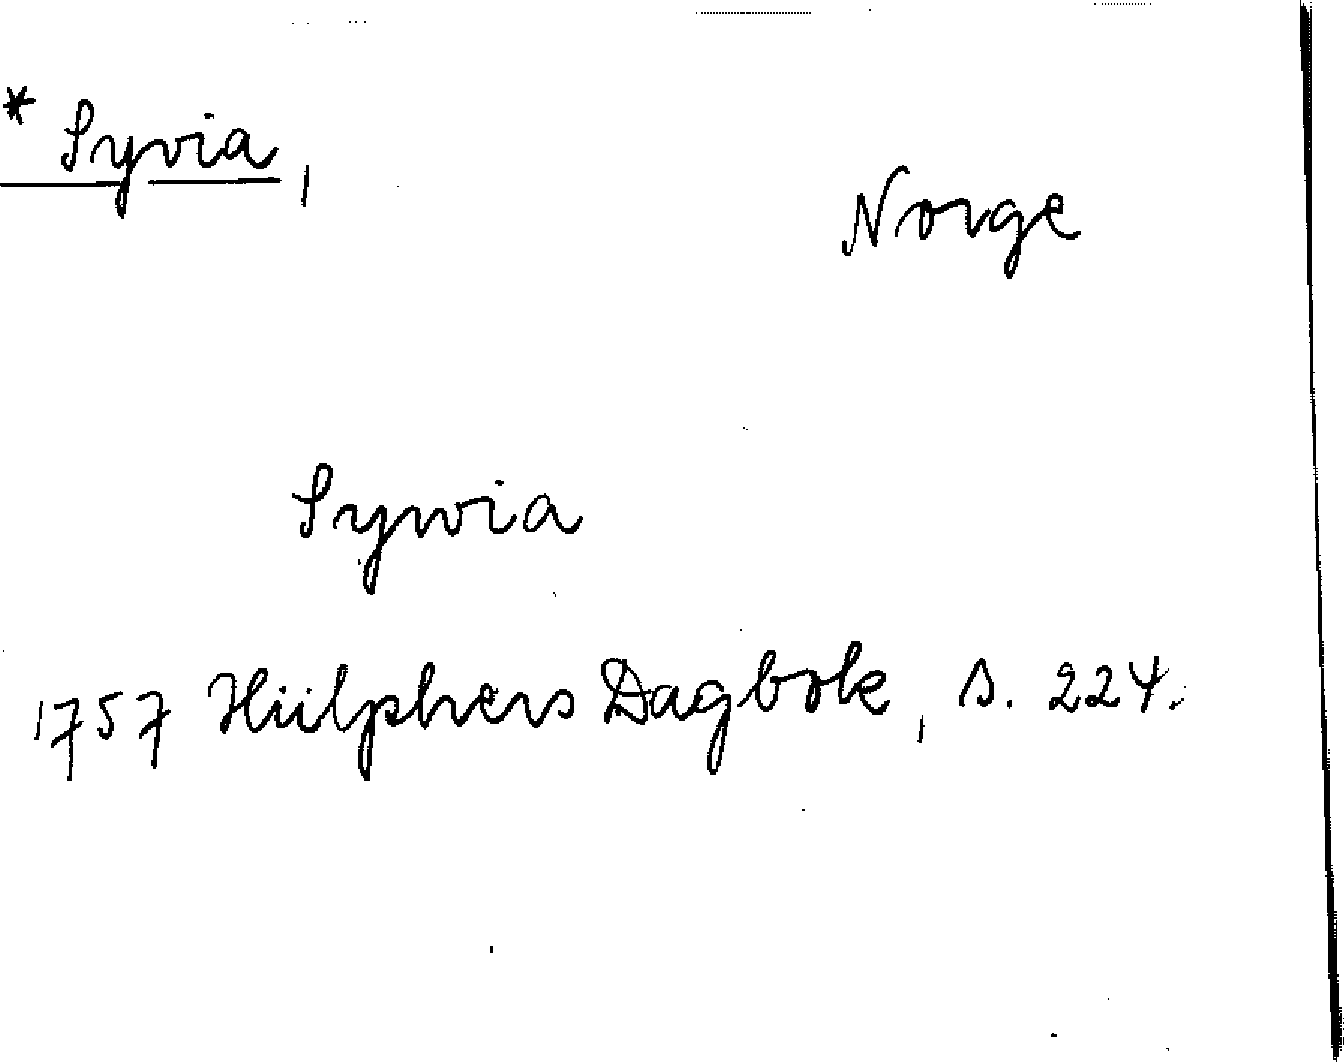 * Syvia,
Norge
Sywia
1757 Hülphers Dagbok, s. 224.